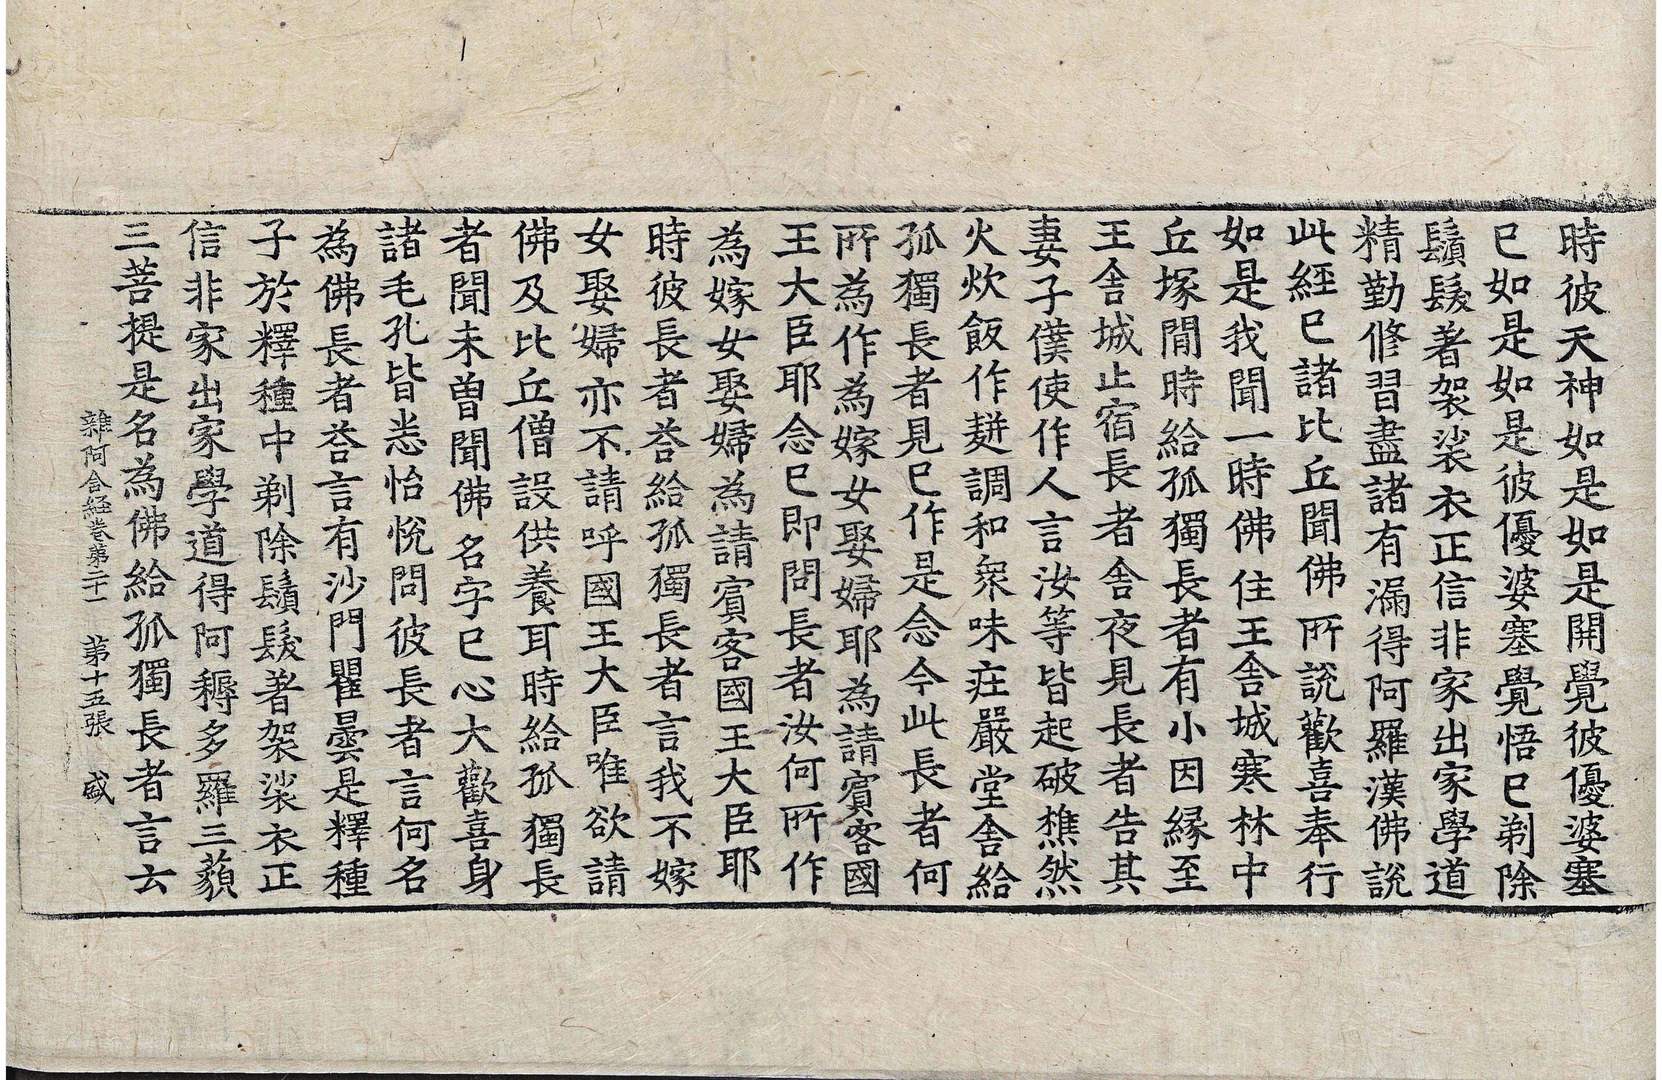 時彼天神如是如是開覺彼優婆塞
已如是如是彼優婆塞覺悟已剃除
鬚髮著袈裟衣正信非家出家學道
精勤修習盡諸有漏得阿羅漢佛說
此經已諸比丘聞佛所說歡喜奉行
如是我聞一時佛住王舍城寒林中
丘塚間時給孤獨長者有小因緣至
王舍城止宿長者舍夜見長者告其
妻子僕使作人言汝等皆起破樵然
火炊飯作𪌘調和衆味莊嚴堂舍給
孤獨長者見已作是念今此長者何
所為作為嫁女娶婦耶為請賓客國
王大臣耶念已即問長者汝何所作
為嫁女娶婦為請賓客國王大臣耶
時彼長者荅給孤獨長者言我不嫁
女娶婦亦不請呼國王大臣唯欲請
佛及比丘僧設供養耳時給孤獨長
者聞未曽聞佛名字已心大歡喜身
諸毛孔皆悉怡悅問彼長者言何名
為佛長者荅言有沙門瞿曇是釋種
子於釋種中剃除鬚髮著袈裟衣正
信非家出家學道得阿耨多羅三藐
三菩提是名為佛給孤獨長者言云
雜阿含経卷第二十一 第十五張 盛